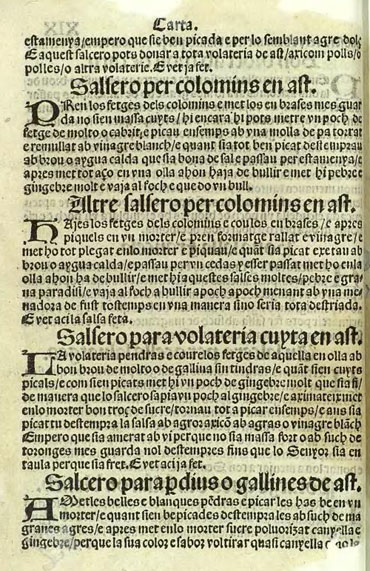 Carta.
estamenya/empero que sie ben picada e per lo semblant agre dolç
E aquest salcero pots donar a tota volateria de ast/axicom polls/o
polles/o altra volaterie. E vet ja fet.
Salsero per colomins en ast.
PRen los fetges dels colomins e met los en brases mes guar
da no sien massa cuyts/hi encara hi pots metre vn poch de
fetge de molto o cabrit/e picau ensemps ab vna molla de pa torrat
e remullat ab vinagre blanch/e quant sia tot ben picat destemprau
ab brou o aygua calda que sia bona de sal e passau per estamenya/e
apres met tot aço en vna olla ahon haja de bullir e met hi pebre e
gingebre molt e vaja al foch e que do vn bull.
Altre salsero per colomins en ast.
HAjes los fetges dels colomins e coulos en brases/e apres
piquels en vn morter/e pren formatge rallat e vinagre/e
met ho tot plegat en lo morter e piquau/e quãt sia picat exetau ab
brou o aygua calda/e passau per vn cedas y esser passat met ho en la
olla ahon ha de bullir/e met hi aquestes salses moltes/pebre e gra
na paradisi/e vaja al foch a bullir apoch apoch menant ab vna me
nadora de fust tostemps en vna manera sino seria tota destriada.
E vet aci la salsa feta.
Salsero para volateria cuyta en ast.
LA volateria pendras e courelos fetges de aquella en olla ab
bon brou de molto o de gallina sin tindras/e quãt sien cuyts
picals/e com sien picats met hi vn poch de gingebre molt que sia fi/
de manera que lo salcero sapia vn poch al gingebre/e aximateix met
en lo morter bon troç de sucre/tornau tot a picar ensemps/e ans sia
picat tu destempra la salsa ab agro axico ab agras o vinagre blãch
Empero que sia amerat ab vi perque no sia massa fort o ab such de
toronges mes guarda nol destempres fins que lo Senyor sia en
taula perque sia fret. E vet aci ja fet.
Salcero para pdius o gallines de ast.
AMetles belles e blanques pẽdras e picar les has be en vn
morter/e quant sien be picades destempra les ab such de ma
granes agres/e apres met en lo morter sucre poluorizat canyella e
gingebre/perque la sua color e sabor voltirar quasi canyella